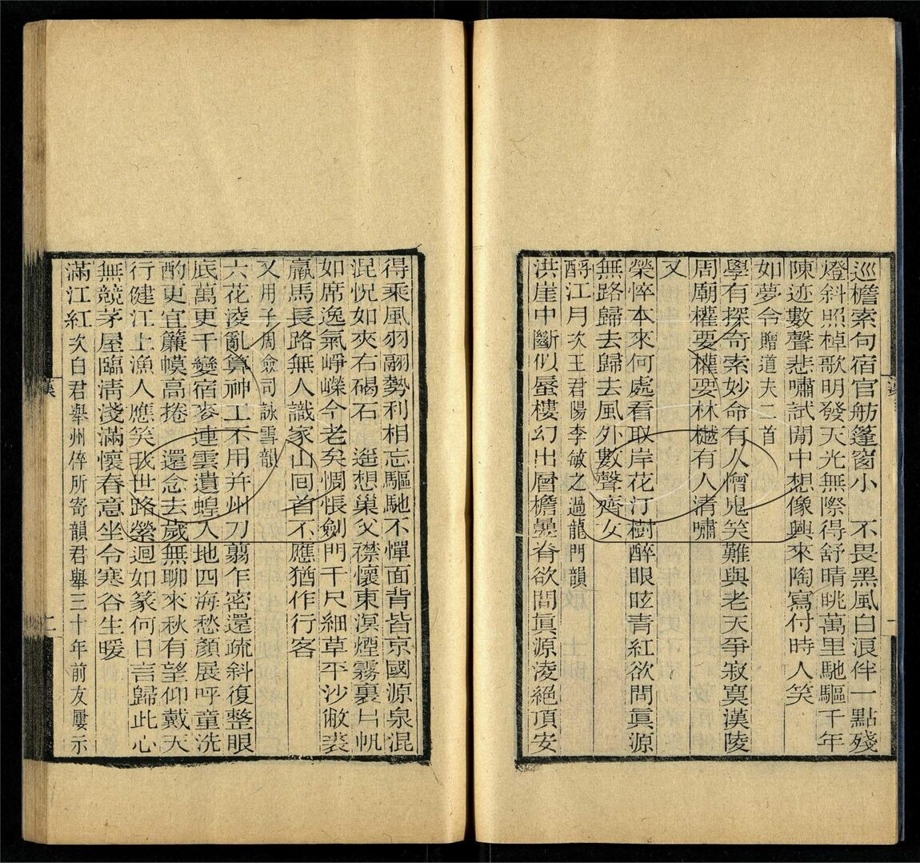 巡檐索句宿官舫篷窗小　不畏黑風白浪伴一點殘
燈斜照棹歌明發天光無際得舒晴眺萬里馳驅千年
陳迹數聲悲嘯試閒中想像興來陶寫付時人笑
如夢令贈道夫二首
學有探奇索妙命有人憎鬼笑難與老天爭寂寞漢陵
周廟權要權要林樾有人清嘯
又
榮悴本來何處看取岸花汀樹醉眼眩青紅欲問眞源
無路歸去歸去風外數聲齊女
酹江月次王君陽李敏之過龍門韻
洪崖中斷似蜃樓幻出層檐曇脊欲問眞源淩絕頂安
得乘風羽翮勢利相忘驅馳不憚面背皆京國源泉混
混怳如夾右碣石　遙想巢父襟懷東溟煙霧裏片帆
如席逸氣崢嶸今老矣惆悵劍門千尺細草平沙敝裘
羸馬長路無人識家山回首不應猶作行客
又用子周僉司詠雪韻
六花淩亂算神工不用并州刀翦乍密還疏斜復整眼
底萬更千變宿麥連雲遺蝗入地四海愁顏展呼童洗
酌更宜簾幙高捲　還念去歲無聊來秋有望仰戴天
行健江上漁人應笑我世路縈迴如篆何日言歸此心
無競茅屋臨清淺滿懷春意坐令寒谷生暖
滿江紅次白君舉州倅所寄韻君舉三十年前友屢示